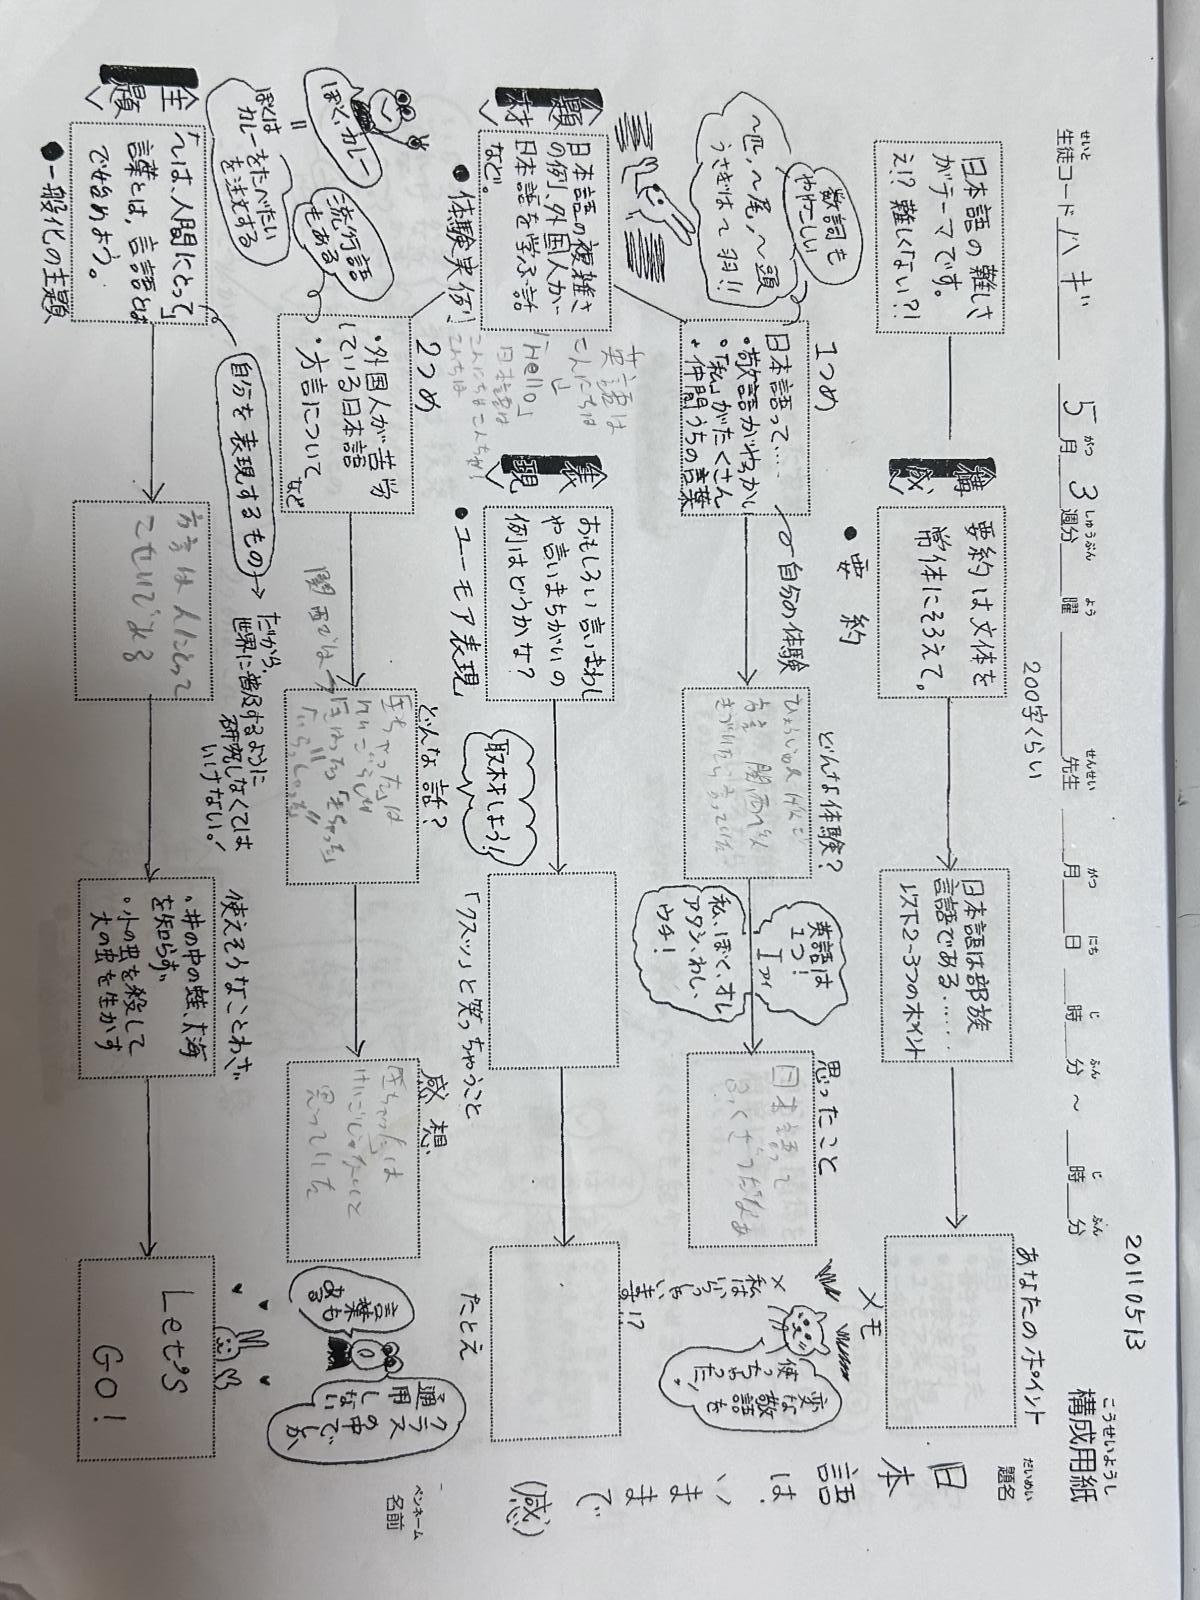 20110513
こうせいようし
構成用紙
せいと
生徒コード ハギ
5月3週分 曜 先生 月 日 時 分 ~ 時 分
がつ しゅうぶん よう せんせい がつ にち じ ふん じ ふん
200字くらい
だいめい
題名
日本語は、いままで
(感)
ペンネーム
名前
日本語の難しさ
がテーマです。
え!?難しくない?!
構成
要約は文体を
常体にそろえて。
●要約
日本語は部族
言語である.....
以下2~3つのポイント
あなたのポイント
数詞も
ややこしい
~匹、~尾、~頭
うさぎはって羽!!
1つめ
日本語って....
・敬語がやっかい
・「私」がたくさん
・仲間うちの言葉
自分の体験
どんな体験?
英語は
1つ!
I アイ
私、ぼく、オレ
アタシ、わし、
ウチ!
思ったこと
日本語って
メモ
変な敬語を
使っちゃった!
題材
日本語の複雑さ
の例、外国人か
日本語を学ぶ話
など。
●体験実例
英語は
こんにちは
↓
「Hello」
日本語は
こんにちは
表現
おもしろい言いまわし
や言いまちがいの
例はどうかな?
●ユーモア表現
取材しよう!!
「クスッ」と笑っちゃうこと
たとえ
ぼく、カレー
=
ぼくは
カレーをたべたい
を注文する
流行語
もある
2つめ
・外国人が苦労
している日本語
・方言について
など
関西では
どんな話?
感想
思っていた
言葉もあるね
クラスの中でしか
通用しない
主題
「~は、人間にとって」
言葉とは、言語とは
で始めよう。
●一般化の主題
自分を表現するもの→
だから、
世界に普及するように
研究しなくては
いけない!
方言は人にとって
こせいである
使えそうなことわざ
・井の中の蛙、大海
を知らず
・小の虫を殺して
大の虫を生かす
Let's
GO!